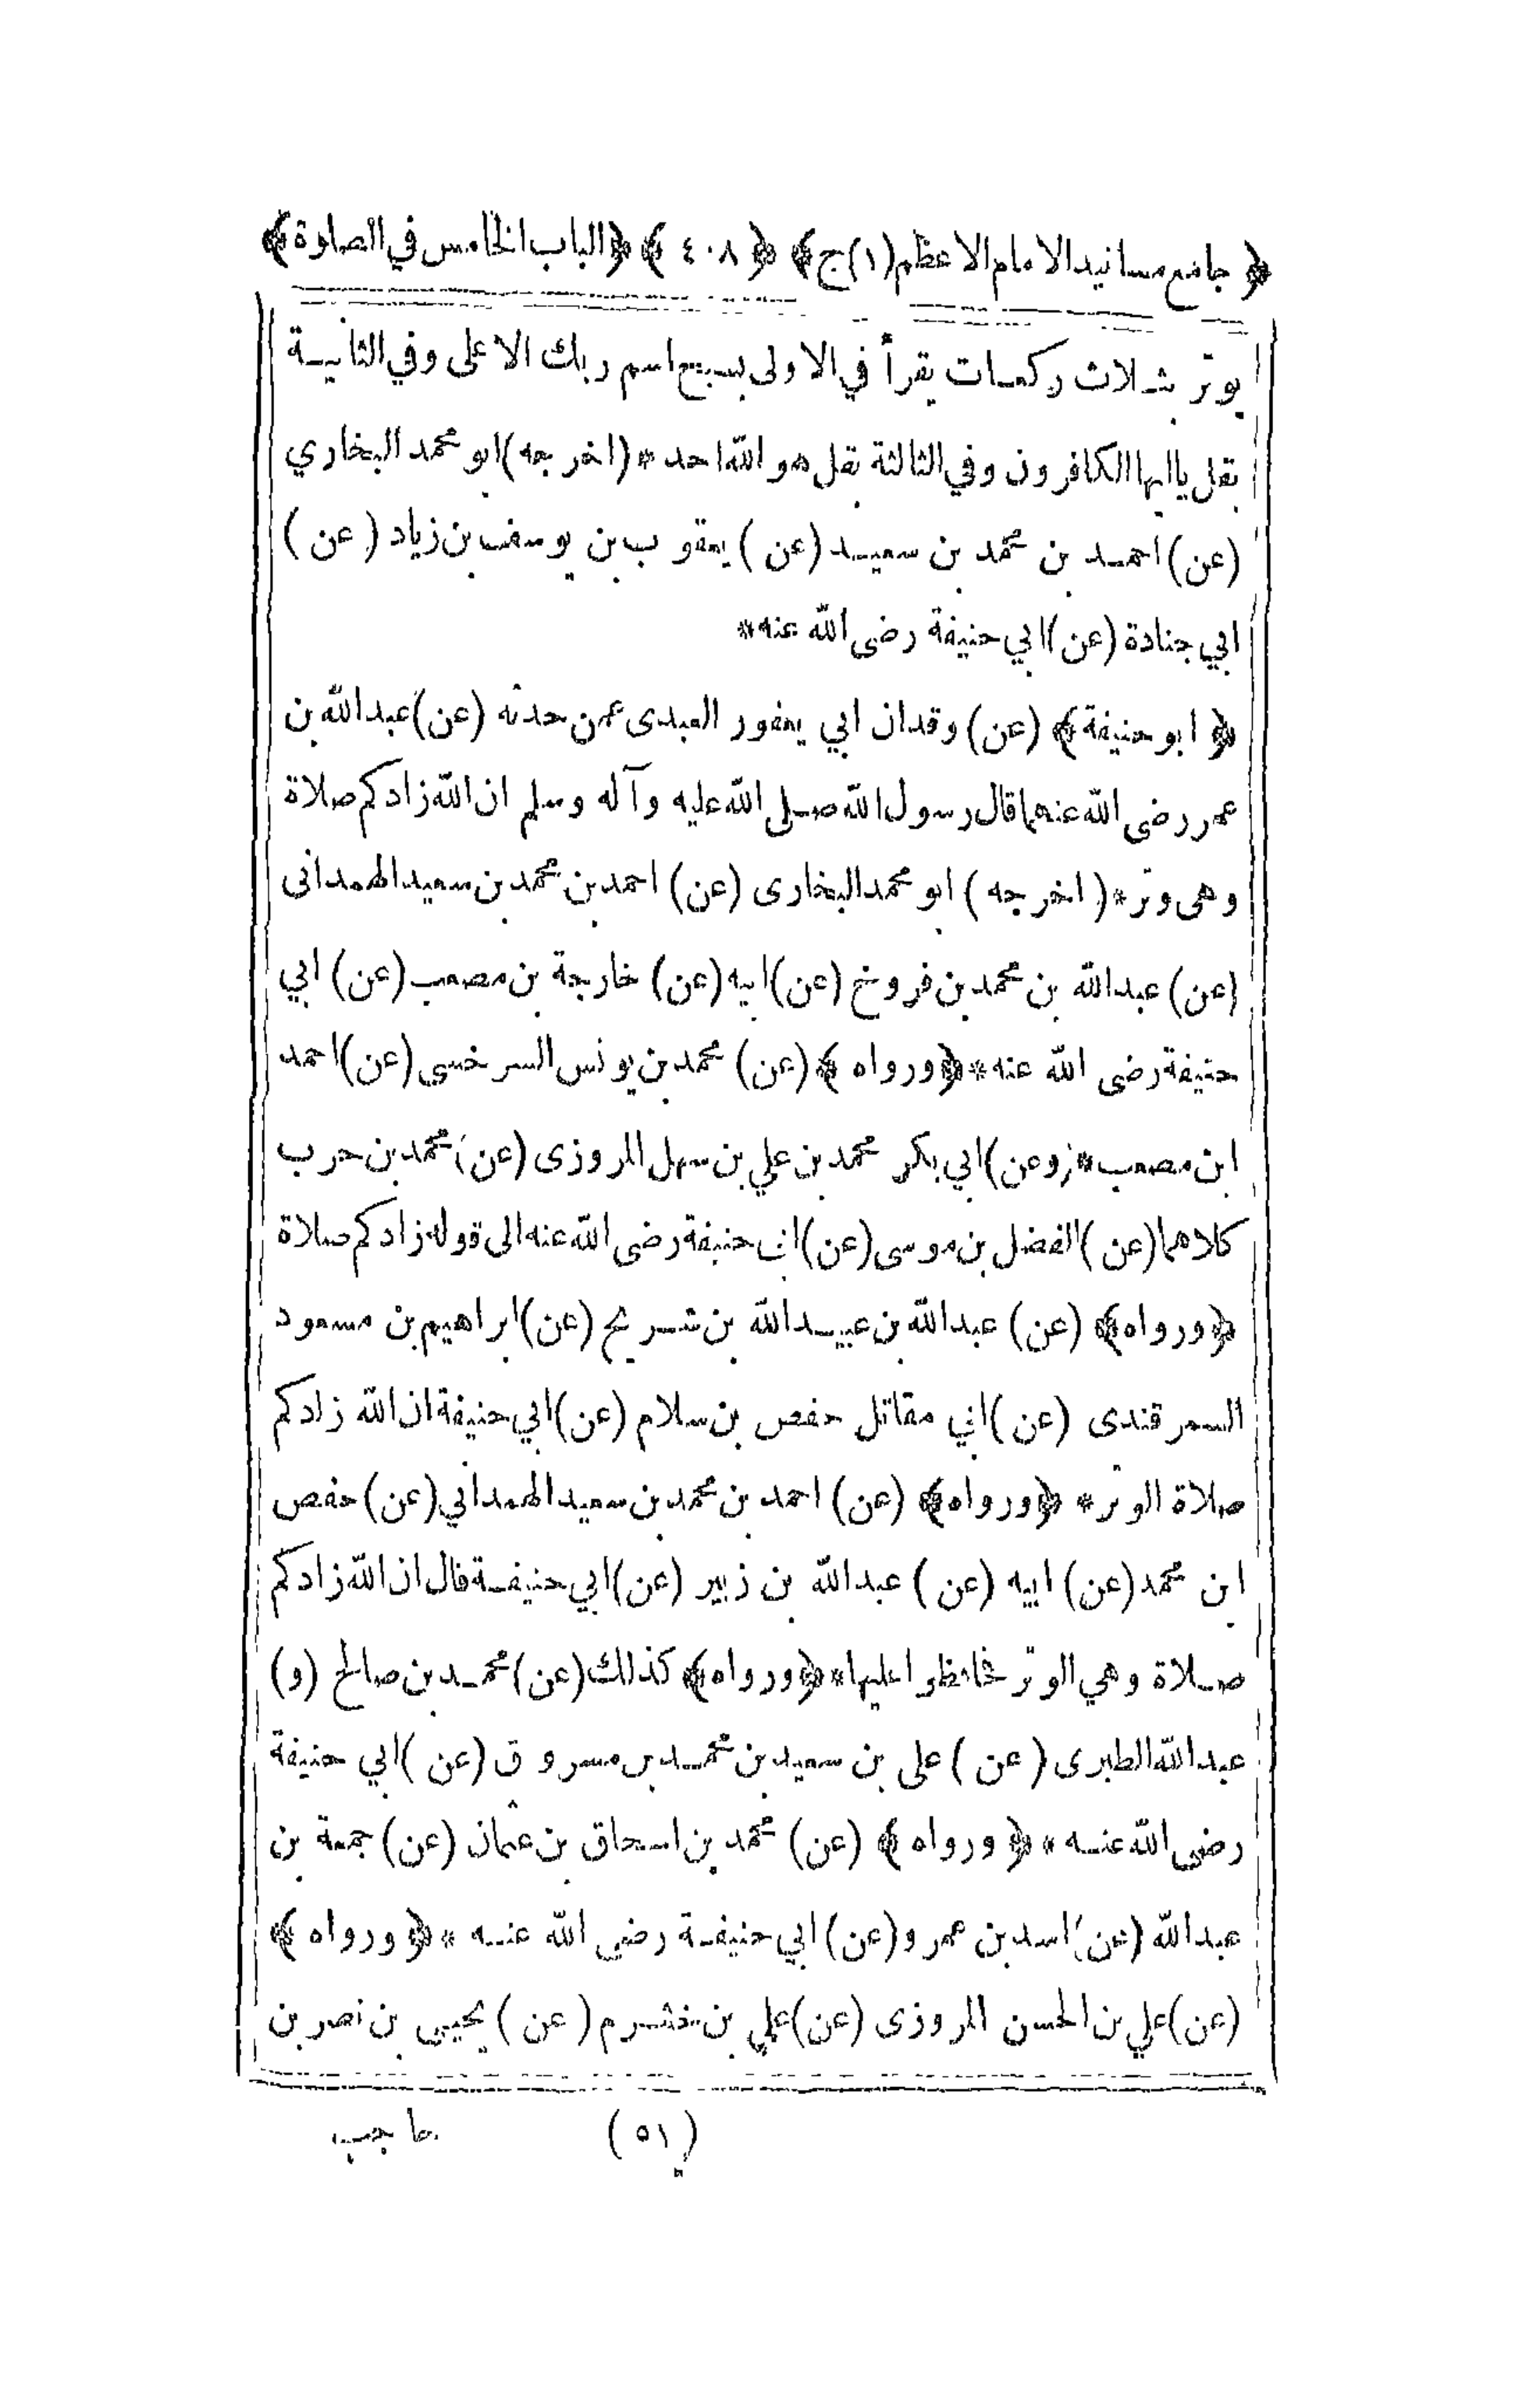 ﴿ جامع مسانيد الامام الاعظم (١) ج ﴾ ﴿ ٤٠٨ ﴾ ﴿ الباب الخامس في الصلوة ﴾
يوتر بثلاث ركعات يقرأ في الاولى بسبح اسم ربك الاعلى وفي الثانية
بقل ياايها الكافرون وفي الثالثة بقل هو الله احد * (اخرجه) ابو محمد البخاري
(عن) احمد بن محمد بن سعيد (عن) يعقوب بن يوسف بن زياد (عن)
ابي جنادة (عن) ابي حنيفة رضى الله عنه *
﴿ ابو حنيفة ﴾ (عن) وقدان ابي يعفور العبدى عمن حدثه (عن) عبد الله بن
عمر رضى الله عنهما قال رسول الله صلى الله عليه وآله وسلم ان الله زادكم صلاة
وهى وتر * (اخرجه) ابو محمد البخارى (عن) احمد بن محمد بن سعيد الهمدانى
(عن) عبد الله بن محمد بن فروخ (عن) ابيه (عن) خارجة بن مصعب (عن) ابي
حنيفة رضى الله عنه * ﴿ ورواه ﴾ (عن) محمد بن يونس السرخسى (عن) احمد
ابن مصعب * (وعن) ابي بكر محمد بن علي بن سهل المروزى (عن) محمد بن حرب
كلاهما (عن) الفضل بن موسى (عن) ابى حنيفة رضى الله عنه الى قوله زادكم صلاة
﴿ ورواه ﴾ (عن) عبد الله بن عبيد الله بن شريح (عن) ابراهيم بن مسعود
السمرقندى (عن) ابي مقاتل حفص بن سلام (عن) ابي حنيفة ان الله زادكم
صلاة الوتر * ﴿ ورواه ﴾ (عن) احمد بن محمد بن سعيد الهمداني (عن) حفص
ابن محمد (عن) ابيه (عن) عبد الله بن زبير (عن) ابي حنيفة قال ان الله زادكم
صلاة وهي الوتر فحافظوا عليها * ﴿ ورواه ﴾ كذلك (عن) محمد بن صالح (و)
عبد الله الطبرى (عن) على بن سعيد بن محمد بن مسروق (عن) ابي حنيفة
رضى الله عنه * ﴿ ورواه ﴾ (عن) محمد بن اسحاق بن عثمان (عن) جمعة بن
عبد الله (عن) اسد بن عمرو (عن) ابي حنيفة رضى الله عنه * ﴿ ورواه ﴾
(عن) علي بن الحسن المروزى (عن) علي بن خشرم (عن) يحيى بن نصر بن
(٥١) حاجب